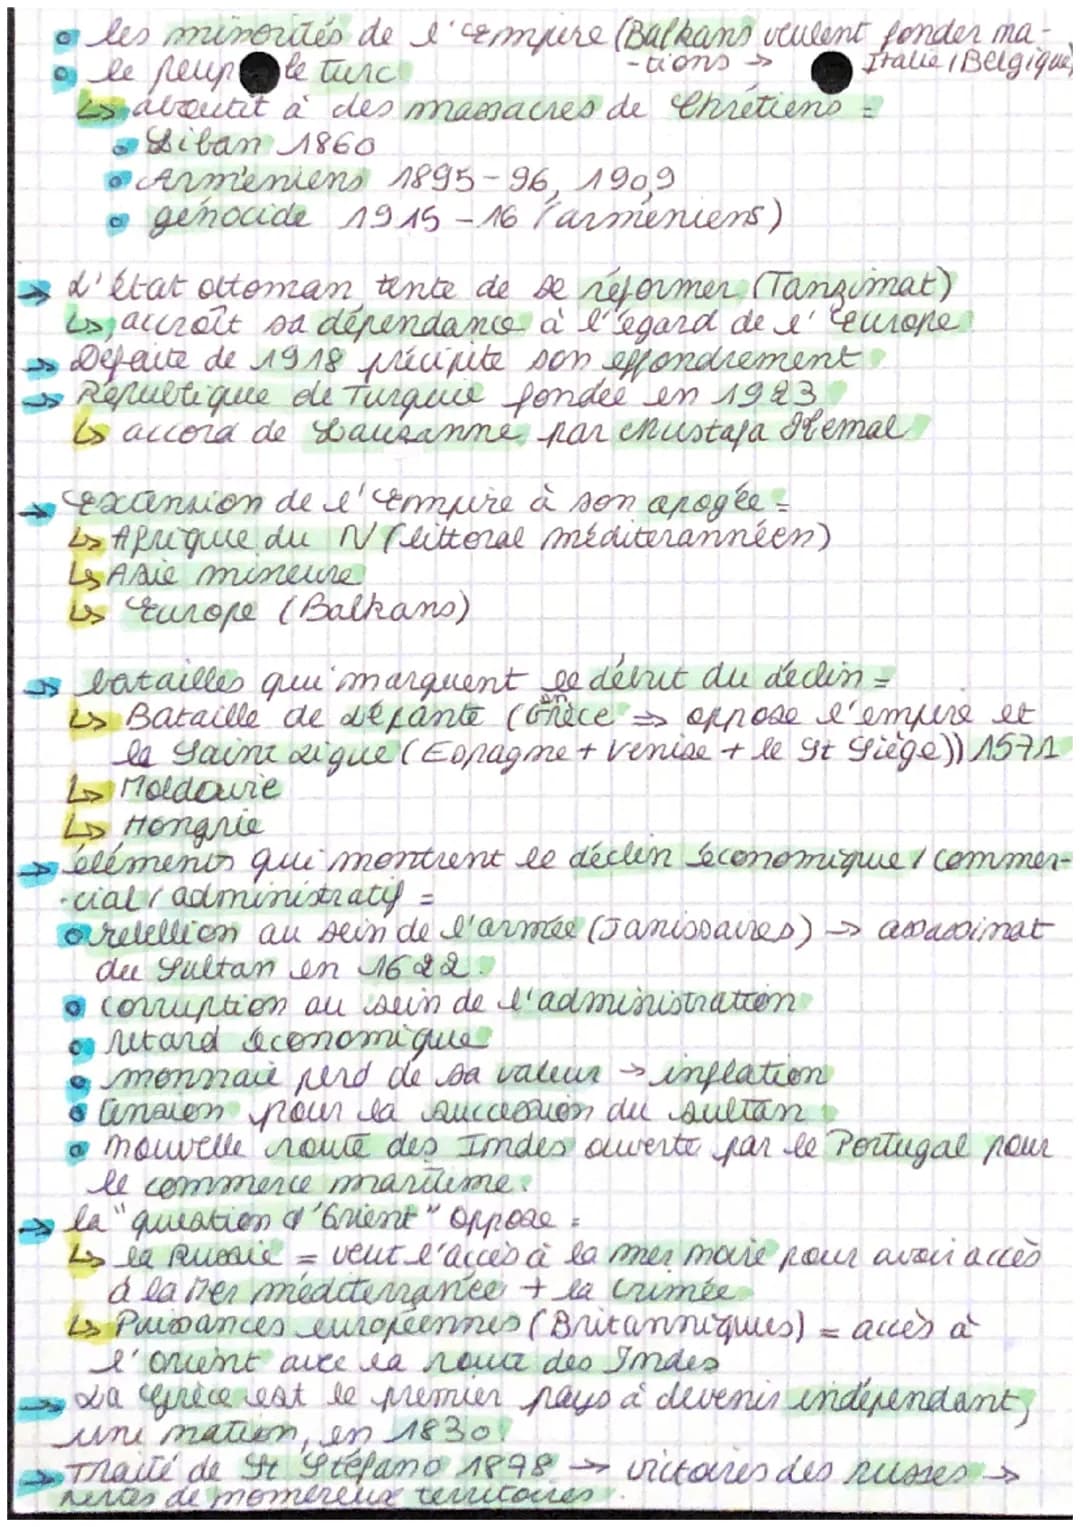 les minorités de l'Empire (Balkans veulent fonder na-
-tions → Italie/Belgique)
le peuple turc
↳ aboutit à des massacres de Chrétiens =
Liban 1860
Arméniens 1895-96, 1909
génocide 1915-16 (arméniens)
→ L'état ottoman tente de se réformer (Tanzimat)
↳ accroît sa dépendance à l'égard de l'Europe
→ Défaite de 1918 précipite son effondrement
→ République de Turquie fondée en 1923
↳ accord de Lausanne par Mustafa Kemal
→ Extension de l'Empire à son apogée =
↳ Afrique du N (littoral méditerannéen)
↳ Asie mineure
↳ Europe (Balkans)
→ batailles qui marquent le début du déclin =
↳ Bataille de Lépante (en Grèce → oppose l'empire et
la Sainte Ligue (Espagne + Venise + le St Siège)) 1571
↳ Moldavie
↳ Hongrie
→ éléments qui montrent le déclin économique / commer-
-cial / administratif =
rebellion au sein de l'armée (Janissaires) → assassinat
du Sultan en 1622.
corruption au sein de l'administration
retard économique
monnaie perd de sa valeur → inflation
tension pour la succession du sultan
nouvelle route des Indes ouverte par le Portugal pour
le commerce maritime.
→ la "question d'Orient" oppose =
↳ la Russie = veut l'accès à la mer noire pour avoir accès
à la Mer méditerranée + la Crimée
↳ Puissances européennes (Britanniques) = accès à
l'orient avec la route des Indes
→ La Grèce est le premier pays à devenir indépendant,
une nation, en 1830.
→ Traité de St Stéfano 1878 → victoires des russes →
pertes de nomereux territoires.